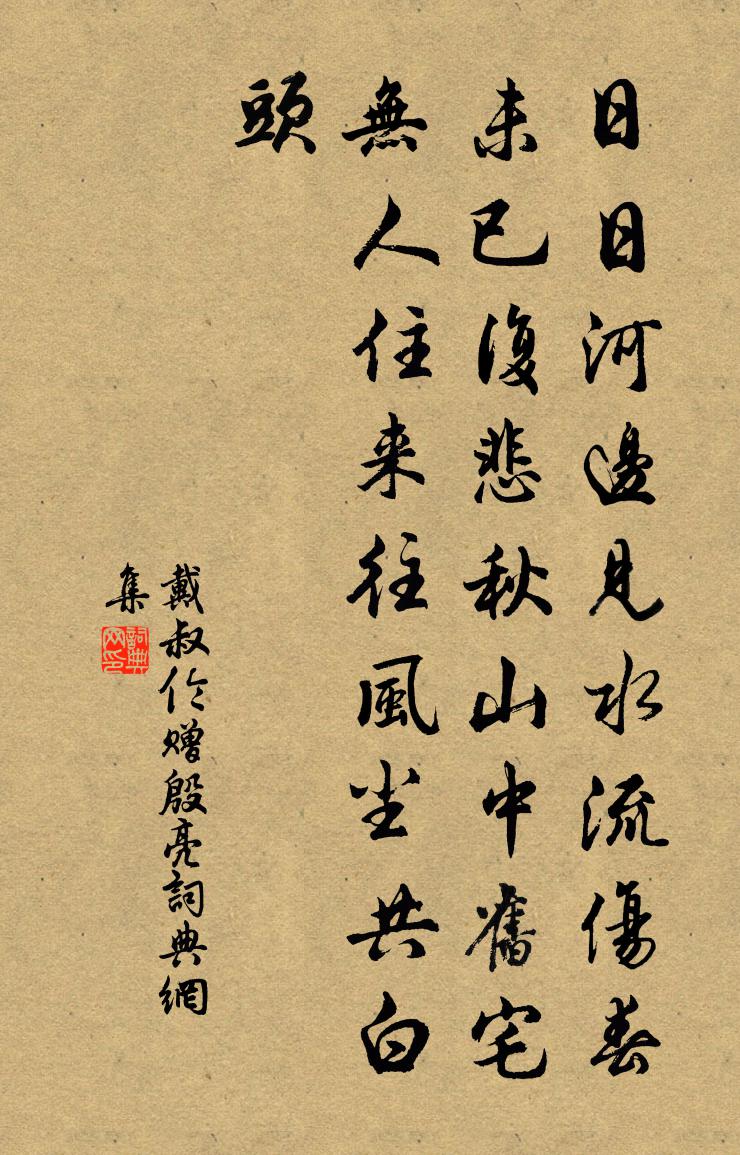 日日河邊見水流傷春
未已復悲秋山中舊宅
無人住来往風尘共白
頭
戴叔伦赠殷亮詞典網
集
詞典
网印